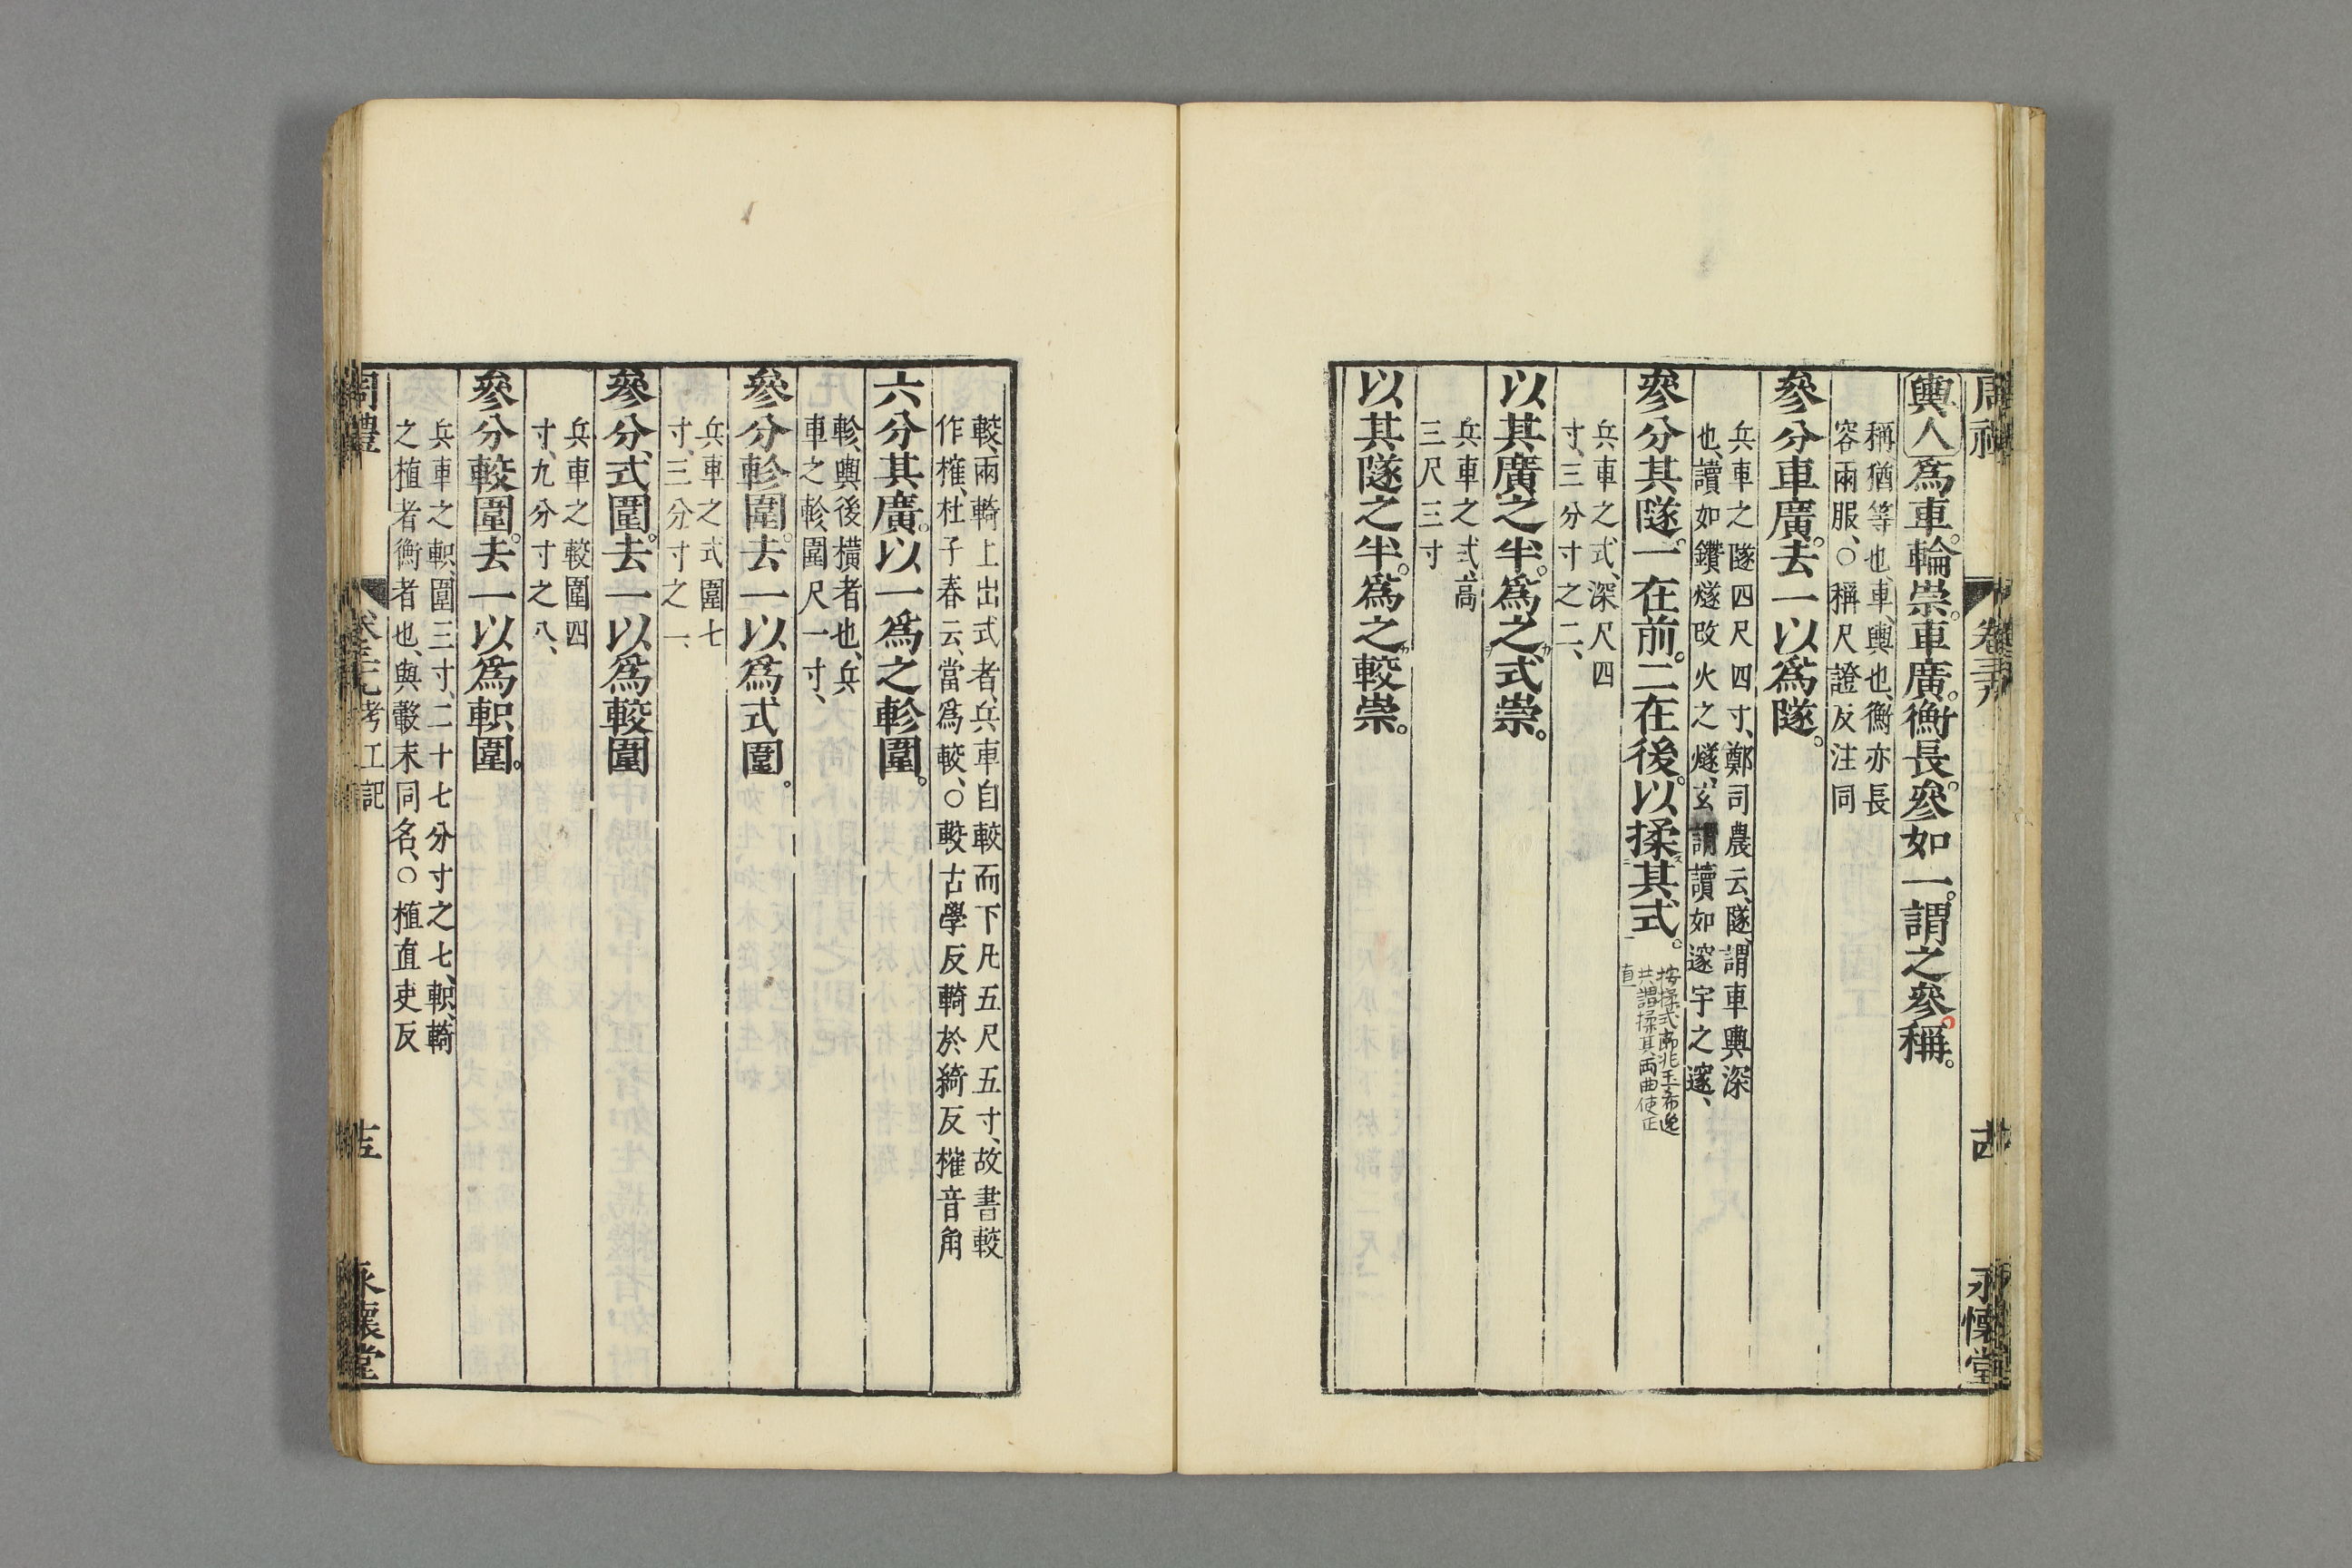 輿人爲車。輪崇。車廣。衡長。參如一。謂之參稱。
稱猶等也、車、輿也、衡亦長
容兩服、〇稱尺證反注同
參分車廣。去一以爲隧。
兵車之隧四尺四寸、鄭司農云、隧、謂車輿深
也、讀如鑽燧改火之燧、玄謂讀如邃宇之邃、
參分其隧。一在前。二在後。以揉其式。
共謂揉其兩曲使正
直
兵車之式、深尺四
寸、三分寸之二、
以其廣之半。爲之式崇。
兵車之式、高
三尺三寸
以其隧之半。爲之較崇。
較、兩輢上出式者、兵車自較而下凡五尺五寸、故書較
作榷、杜子春云、當爲較、〇較古學反輢於綺反榷音角
六分其廣。以一爲之軫圍。
軫、輿後橫者也、兵
車之軫、圍尺一寸、
參分軫圍。去一以爲式圍。
兵車之式圍七
寸、三分寸之一、
參分式圍。去一以爲較圍
兵車之較圍四
寸、九分寸之八、
參分較圍。去一以爲軹圍。
兵車之軹、圍三寸、二十七分寸之七、軹、輢
之植者衡者也、與轂末同名、〇植直吏反
周禮
考工記
永懷堂